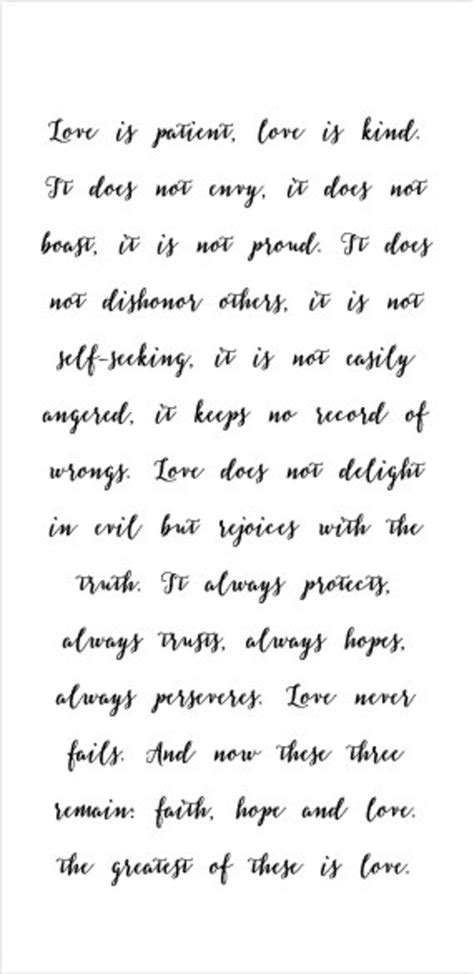 Love is patient, love is kind.
It does not envy, it does not
boast, it is not proud. It does
not dishonor others, it is not
self-seeking, it is not easily
angered, it keeps no record of
wrongs. Love does not delight
in evil but rejoices with the
truth. It always protects,
always trusts, always hopes,
always perseveres. Love never
fails. And now these three
remain: faith, hope and love.
the greatest of these is love.